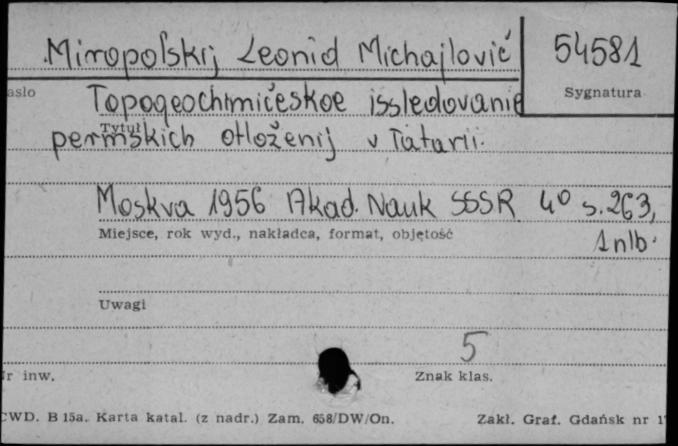 Miropol'skij Leonid Michajlovič 54581
asło Sygnatura
Topogeochimičeskoe issledovanie
Tytuł
permskich otloženij v Tatarii.
Moskva 1956 Akad. Nauk SSSR 4° s. 263,
Miejsce, rok wyd., nakładca, format, objętość
1 nlb.
Uwagi
5
r inw. Znak klas.
CWD. B 15a. Karta katal. (z nadr.) Zam. 658/DW/On. Zakł. Graf. Gdańsk nr 1